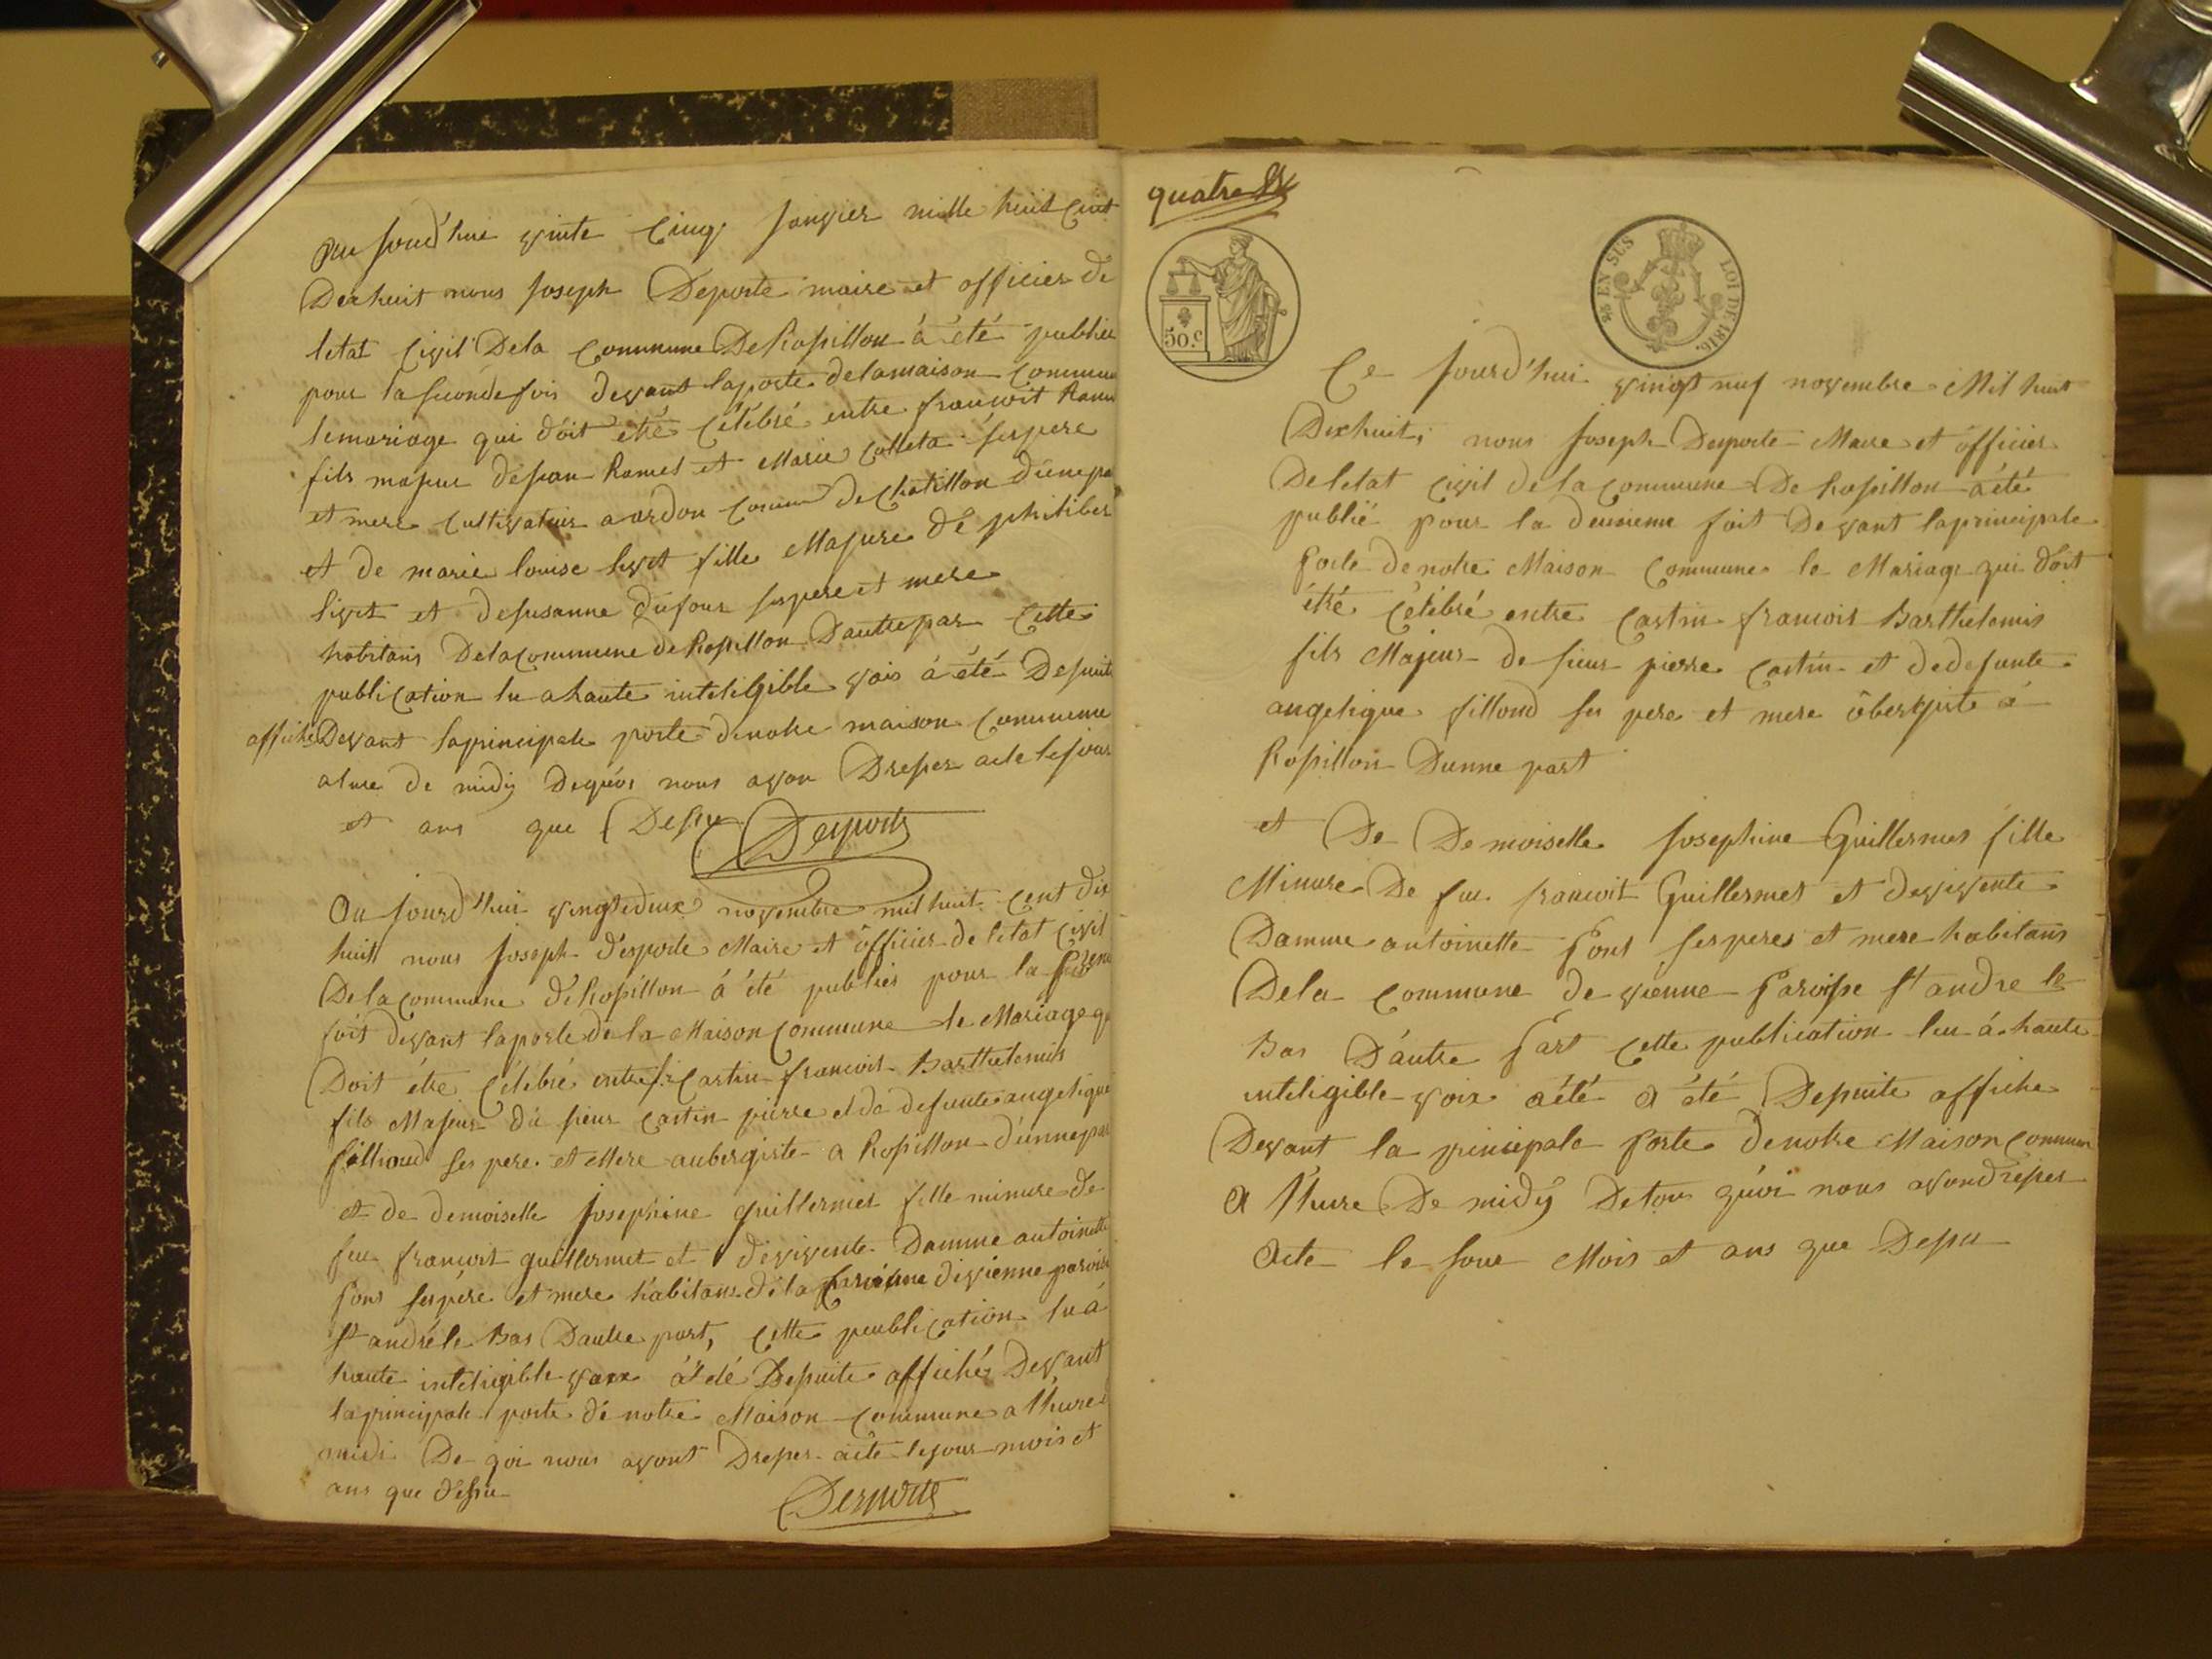 Au jourd'hui vinte cinq janvier mille huit cent
Dixhuit nous joseph Deporte maire et officier de
letat civil Dela commune De Rossillon à été publiér
pour la seconde fois devant laporte delamaison commune
lemariage qui dóit etre célébré entre françoit Ramel
fils majeur dejean Ramel et Marie Colleta ses pere
et mere cultivateur a ardon comm de chatillon dúne pa
et de marie louise livet fille Majeure dé philiber
livet et desusanne dúfour sespere et mere
habitans Delacommune de Rossillon Dautre par cette
publication lu ahaute inteligible vois à été Desuite
affiche Devant laprincipale porte denotre maison commune
alure de midy Dequoi nous avon Dresser acte lejour
et ans que Dessu Desporte
Au jourd'hui vingtedeux novembre mil huit cent dix
huit nous joseph desporte Maire et ófficier de letat civil
De la commune dé Rossillon à été publiér pour la
foit devant laporte de la Maison commune le Mariage q
Doit étre célébré entre castin françois Barthelemis
fils Majeur du sieur castin pierre et de defunte angelique
filloud ses pere et Mere aubergiste a Rossillon d'únne par
et de demoiselle josephine guillermet fille minure de
feu françoit guillermet et dévivente Damme antoinette
pont sespére et mere habitans déla commune devienne paroisse
st andré le Bas Dautre part, cette peublication lu á
haute inteligible voix á été Desuite affiché Devant
laprincipale porte dé notre Maison commune a lhure
midi De qoi nous avont Dresser acte lejour mois et
ans que déssu
Desporte
quatre
50.c
25 EN SUS LOI DE 1816.
Ce jourd'hui vingt nuf novembre Mil huit
Dixhuit, nous joseph Desporte Maire et officier
De letat civil de la commune De Rossillon à été
publié pour la deusieme foit Devant laprincipale
Porte de notre Maison Commune le Mariage qui dóit
étré célébré entre Castin françoit Barthelemis
fils Majeur de sieur pierre castin et de defunte
angelique filloud ses pere et mere óbergiste á
Rossillon Dunne part
et De Demoiselle josephine Guillermet fille
Minure De feu françoit Guillermet et devivente
Damme antoinette Pont sesperes et mere habitans
Dela commune de vienne Paroisse st andre le
Bas D'áutre Part cette publication leu á haute
inteligible voix aété a été Desuite affiche
Devant la principale Porte denotre Maison commun
A lhure De midy Detou qúoi nous avondresser
Acte le jour Mois et ans que Dessu